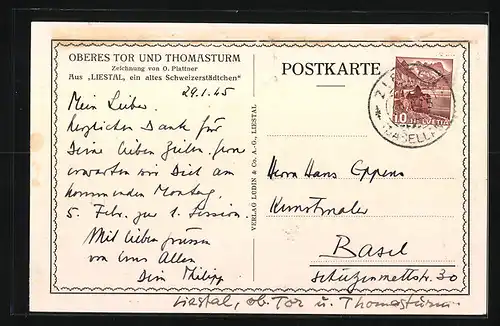 OBERES TOR UND THOMASTURM
Zeichnung von O. Plattner
Aus „LIESTAL, ein altes Schweizerstädtchen"
29.1.45
Mein Lieber.
herzlichen Dank für
Deine lieben Zeilen. Gern
erwarten wir Dich am
kommenden Montag,
5. Febr. zur 1. Session.
Mit lieben Grüssen
von uns Allen
Dein Philipp
VERLAG LÜDIN & Co. A.-G., LIESTAL
POSTKARTE
10 HELVETIA
Herrn Hans Eppens
Kunstmaler
Basel
Schützenmattstr. 30
Liestal, ob. Tor u. Thomasturm